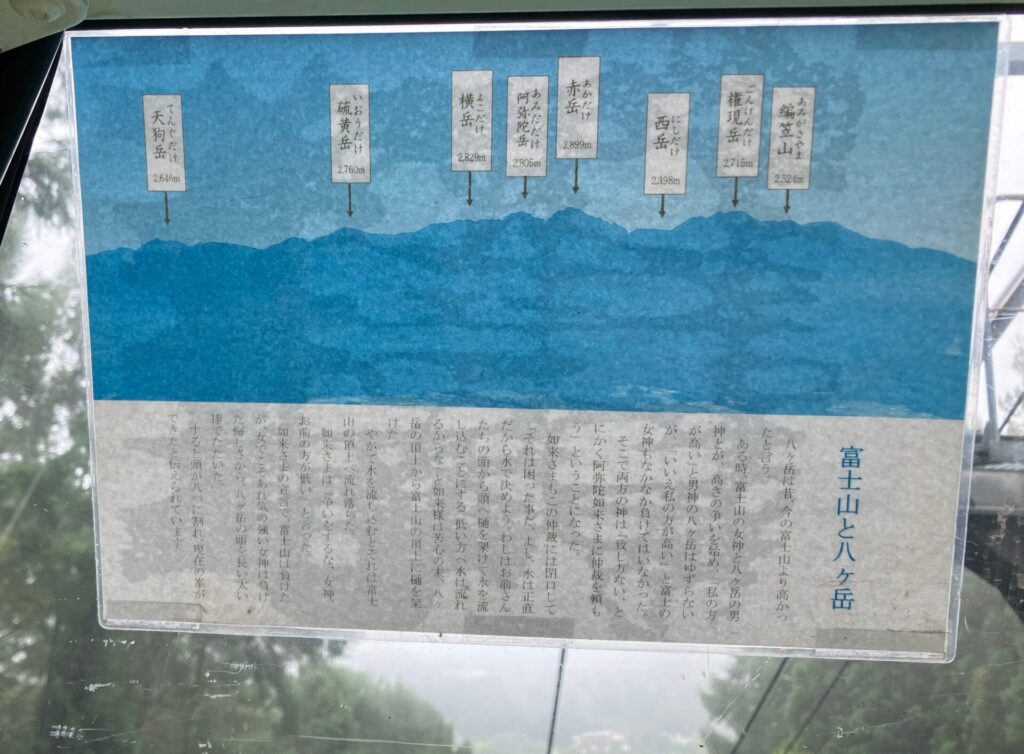 てんぐだけ
天狗岳
2,646m
いおうだけ
硫黄岳
2,760m
よこだけ
横岳
2,829m
あみだだけ
阿弥陀岳
2,805m
あかだけ
赤岳
2,899m
にしだけ
西岳
2,398m
ごんげんだけ
権現岳
2,715m
あみがさやま
編笠山
2,524m
富士山と八ヶ岳
八ヶ岳は昔、今の富士山より高かっ
たと言う。
ある時、富士山の女神と八ヶ岳の男
神とが、高さの争いを始め、「私の方
が高い」と男神の八ヶ岳はゆずらない
が、「いいえ私の方が高い」と富士の
女神もなかなか負けてはいなかった。
そこで両方の神は「致し方ない、と
にかく阿弥陀如来さまに仲裁を頼も
う」ということになった。
如来さまもこの仲裁には閉口して
「それは困った事だ、よし、水は正直
だから水で決めよう、わしはお前さん
たちの頭から頭へ樋を架けて水を流
し込むことにする、低い方へ水は流れ
るからな」と如来様は苦心の末、八ヶ
岳の頂上から富士山の頂上に樋を架
けた。
やがて水を流し込むとそれは富士
山の頂上へ流れ落ちた。
如来さまは「争いをするな、女神、
お前の方が低い」と言った。
如来さまの宣言で富士山は負けた
が、女でこそあれ気の強い女神は負け
た悔しさから、八ヶ岳の頭を長い太い
棒でたたいた。
すると頭が八つに割れ、現在の峯が
できたと伝えられています。